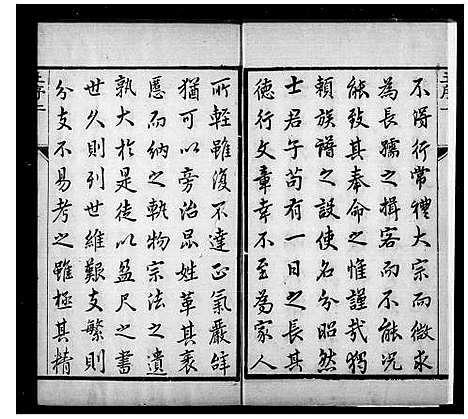 不得行常禮大宗而微求
為長孺之揖客而不能況
能致其奉命之惟謹哉獨
賴族譜之設使名分昭然
士君子苟有一日之長其
德行文章幸不至為家人
所輕雖復不達正氣嚴辭
猶可以旁治品姓革其褻
慝而納之軌物宗法之遺
孰大於是徒以盈尺之書
世久則列世維艱支繁則
分支不易考之雖極其精